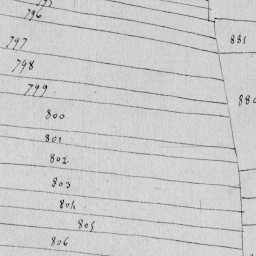 795
796
881
797
798
799
880
800
801
802
803
804
805
806